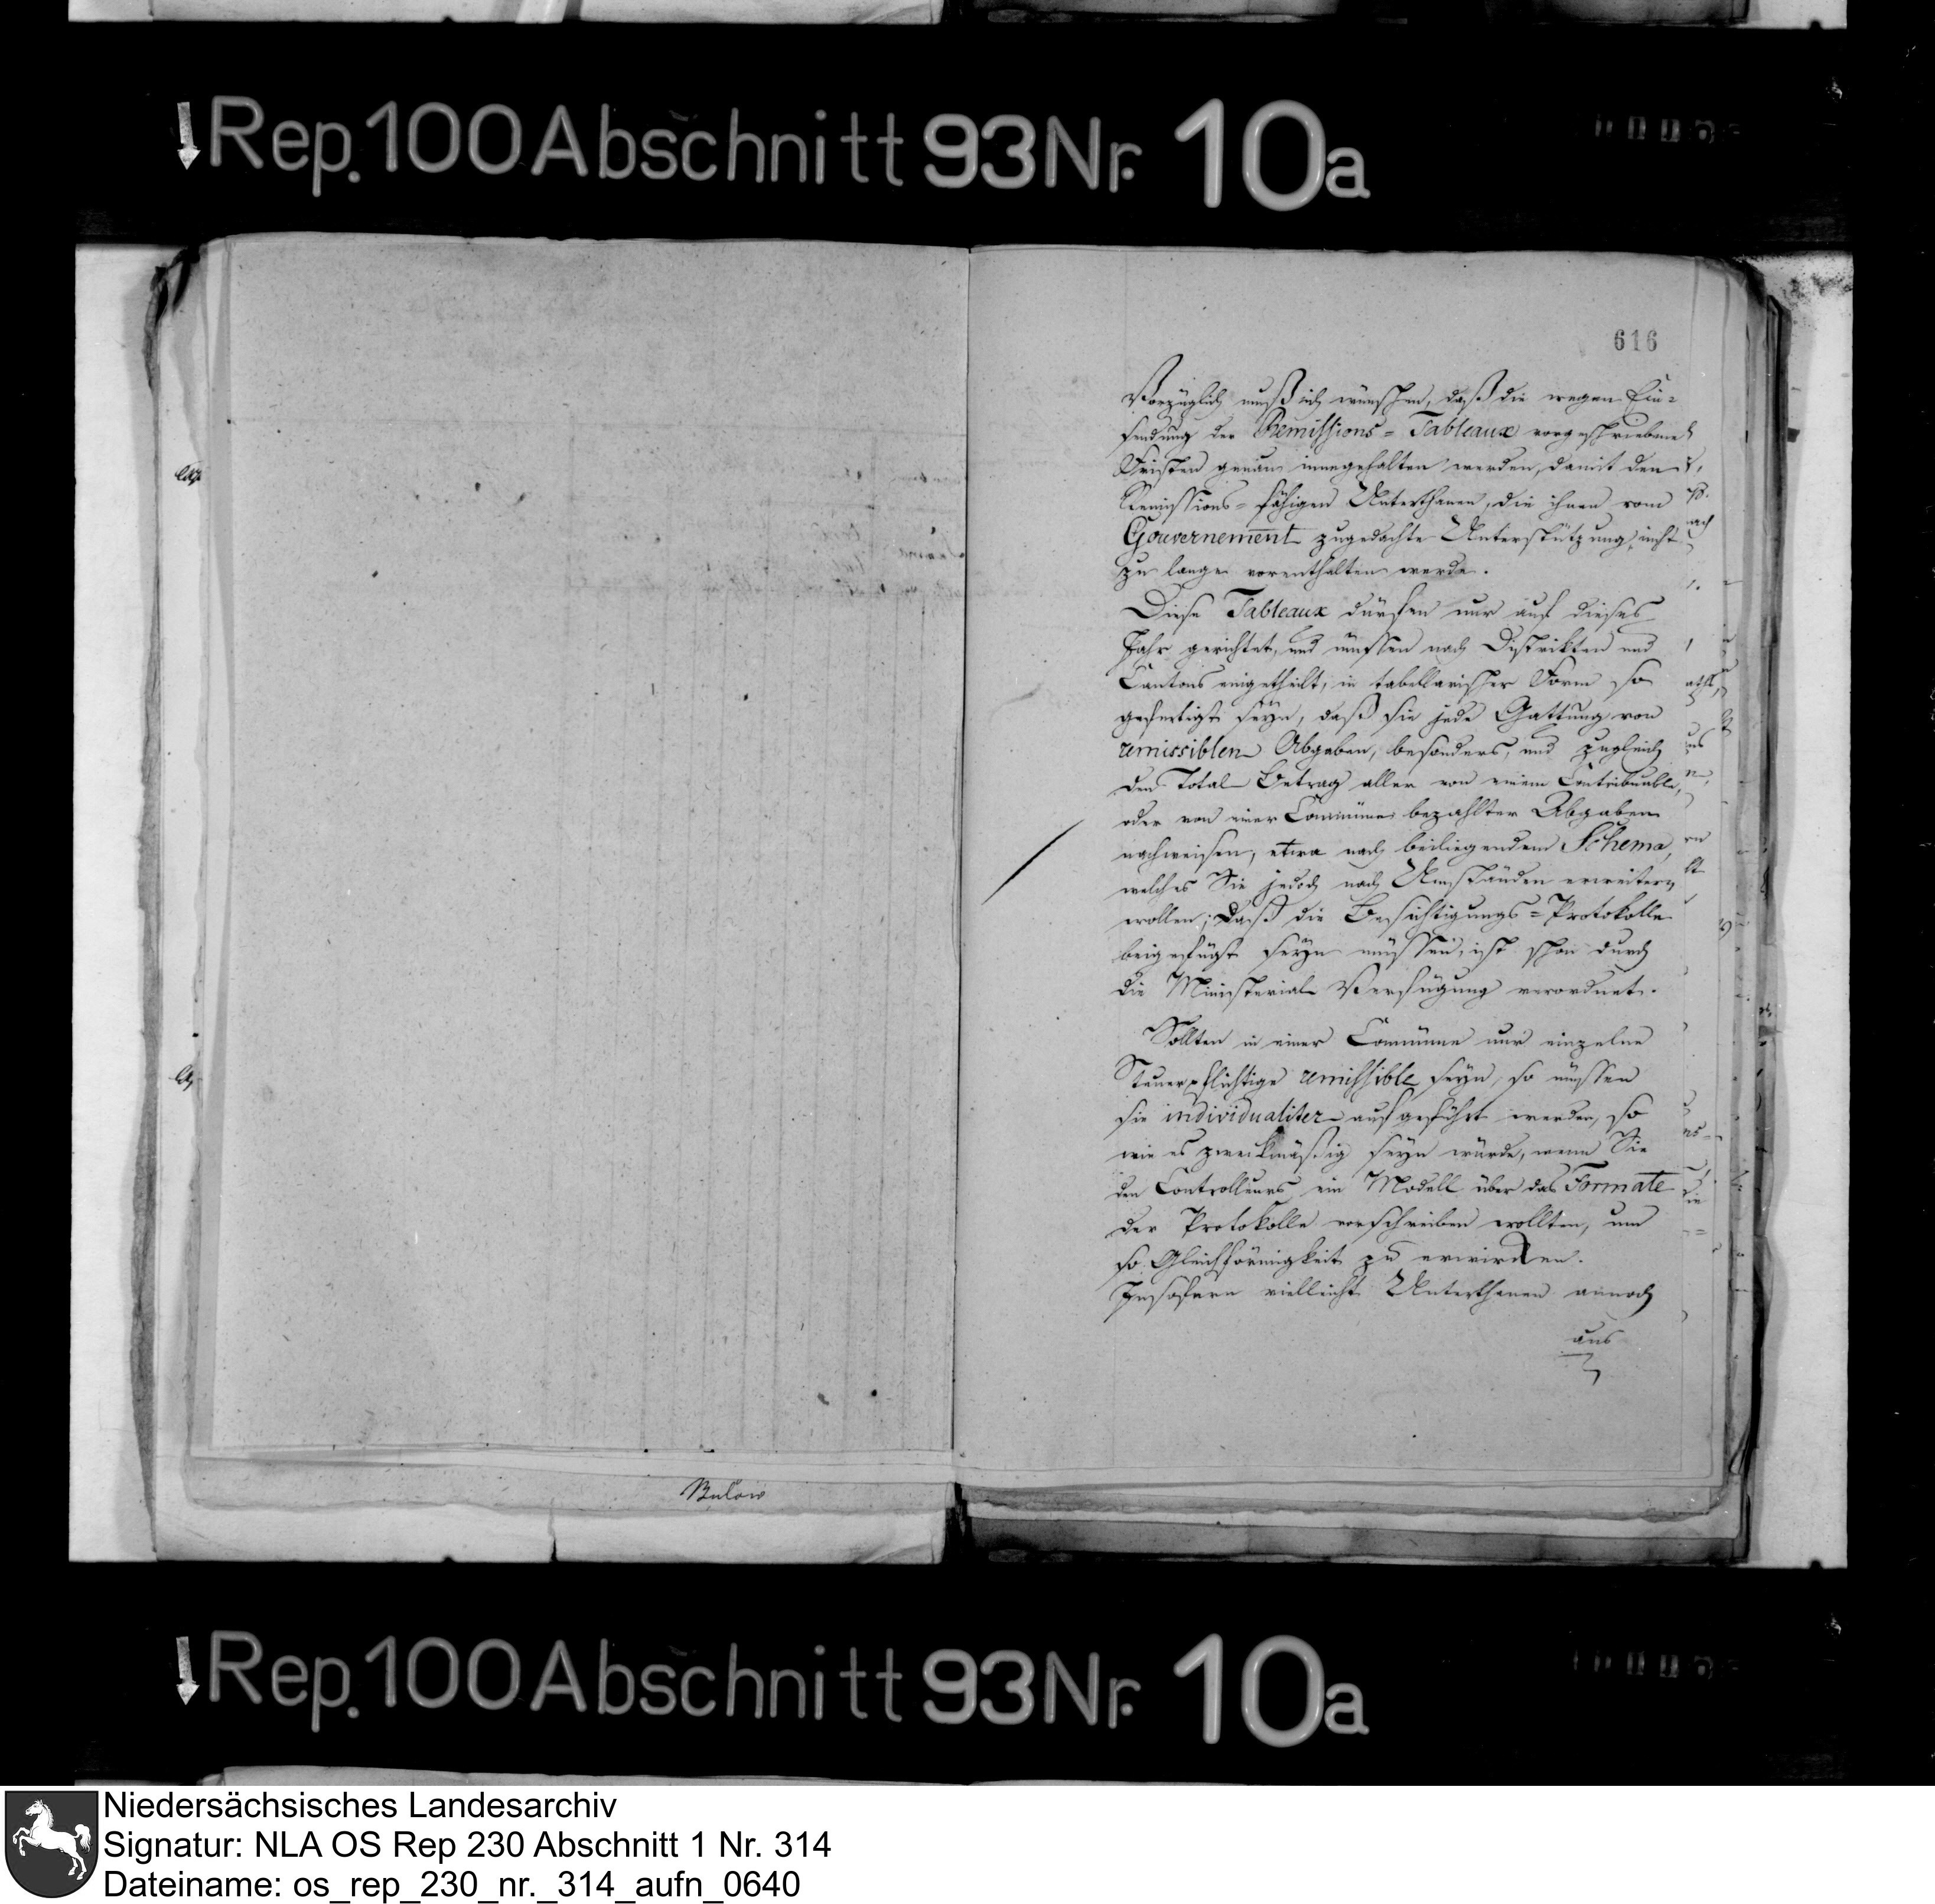 Rep. 100 Abschnitt 93 Nr. 10a
616
Vorzüglich muß ich wünschen, daß die wegen Ein=
sendung der Remissions= Tableaux vorgeschriebenen
Fristen genau innegehalten werden, damit den
Remissions= fähigen Unterthanen, die ihnen vom
Gouvernement zugedachte Unterstützung, nicht
zu lange vorenthalten werde.
Diese Tableaux dürfen nur auf dieses
Jahr gerichtet, und müssen nach Distrikten und
Cantons eingetheilt, in tabellarischer Form so
gefertigt seyn, daß sie jede Gattung von
remissiblen Abgaben, besonders, und zugleich
den Total Betrag aller von einem Contribuable,
oder von einer Commüne bezahlter Abgaben
nachweisen, etwa nach beiliegendem Schema,
welches Sie jedoch nach Umständen erweitern
wollen; Daß die Besichtigungs= Protokolle
beigefügt seyn müssen, ist schon durch
die Ministerial Verfügung verordnet.
Sollten in einer Commüne nur einzelne
Steuerpflichtige remissible seyn, so müssen
sie individualiter aufgeführt werden, so
wie es zweckmäßig seyn würde, wenn Sie
den Controlleurs ein Modell über das Formate
der Protokolle vorschreiben wollten, um
so Gleichförmigkeit zu erwirken.
Insofern vielleicht Unterthanen annoch
aus
Bülow
Rep. 100 Abschnitt 93 Nr. 10a
Niedersächsisches Landesarchiv
Signatur: NLA OS Rep 230 Abschnitt 1 Nr. 314
Dateiname: os_rep_230_nr._314_aufn_0640